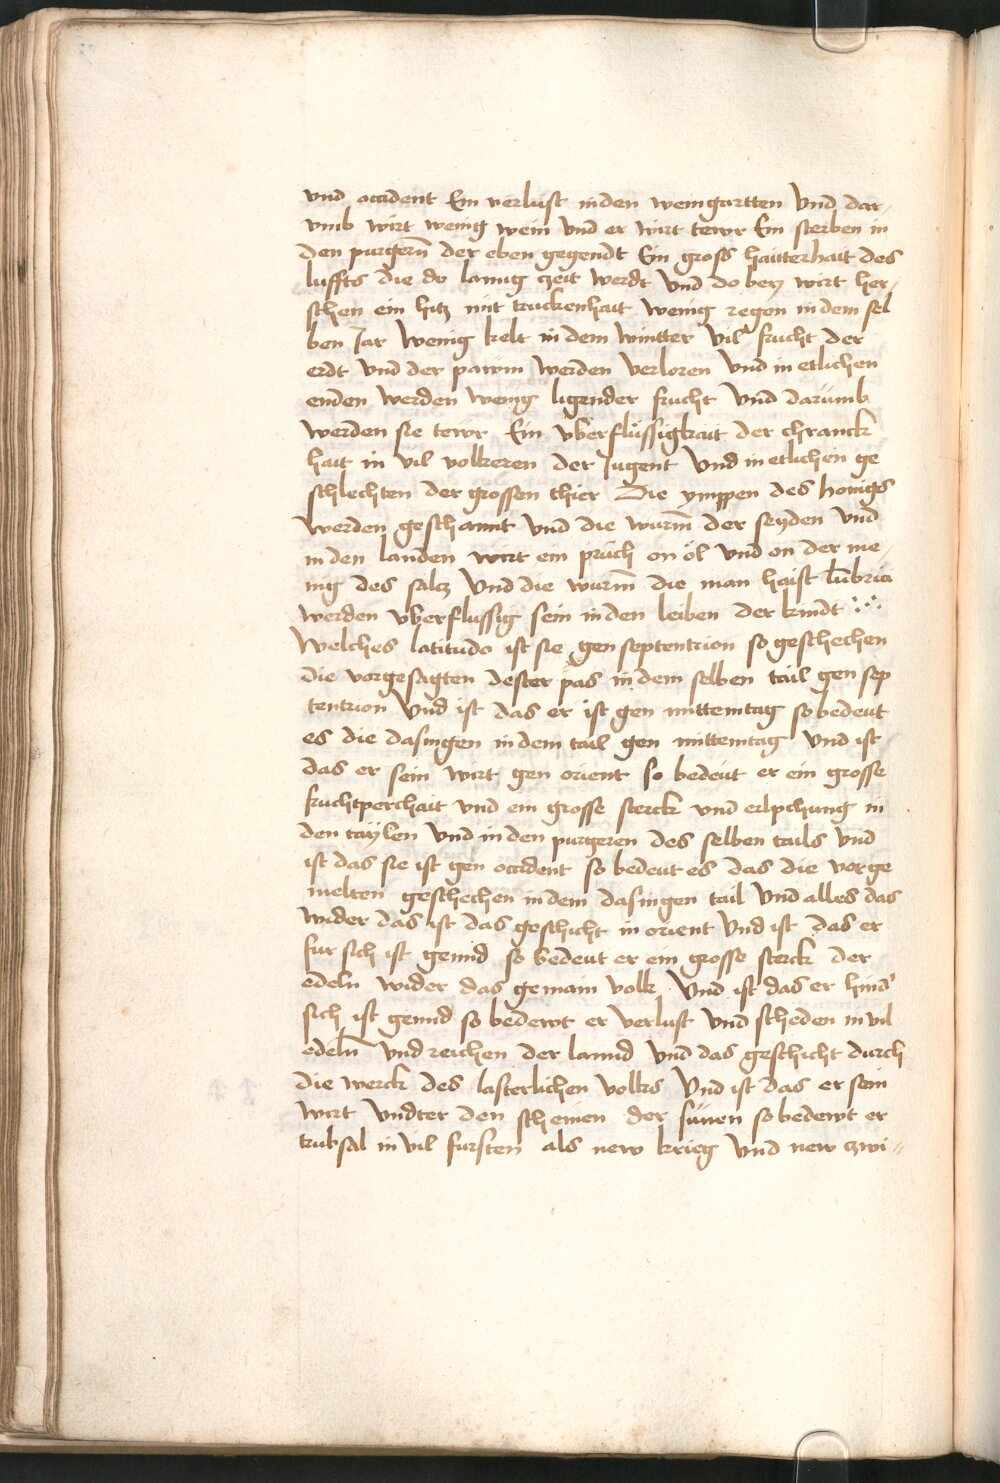 vnd occident Ein verlust in den weingartten Vnd dar,
vmb wirt wenig wein vnd er wirt tewr Ein sterben in
den purgern̄ der eben gegendt Ein gross haitterhait des
luffts die do lannig zeit werdt Vnd do bey wirt her,
schen ein hitz mit truckenhait wenig regen in dem sel
ben Jar Wenig kelt in dem wintter Vil frucht der
erdt Vnd der pawm werden verloren Vnd in etlichen
enden werden wenig ligender frucht Vnd darümb
werden sie tewr Ein vberflüssigkait der chranck
hait in vil volkeren der Jugent Vnd in etlichen ge
schlechten der grossen thier Die ymppen des honigs
werden geschannt Vnd die wurm̄ der seyden Vnd
in den landen wirt ein prüch on öl Vnd on der me,
nig des saltz Vnd die wurm̄ die man haist lūbrici
werden vberflussig sein in den leiben der kindt
Welches latitudo ist sie gen septentrion so geschechen
die vorgesagten dester pas in dem selben tail gen sep
tentrion Vnd ist das er ist gen mittemtag so bedeut
es die dasingen in dem tail gen mittemtag Vnd ist
das er sein wirt gen orient so bedeut er ein grosse
fruchtperchait vnd ein grosse sterck vnd erlpchung in
den taÿlen Vnd in den purgeren des selben tails Vnd
ist das sie ist gen occident so bedeut es das die vorge
melten geschechen in dem dasingen tail Vnd alles das
wider das ist das geschicht in orient Vnd ist das er
fur sich ist gennd so bedeut er ein grosse sterck der
edeln wider das gemain volk Vnd ist das er hind'
sich ist gennd so bedewt er verlust Vnd scheden in vil
edeln̄ Vnd reichen der lannd Vnd das geschicht durch
die werck des lasterlichen volks Vnd ist das er sein
wirt Vndter den scheinen der sunen so bedewt er
trubsal in vil fursten als new krieg Vnd new zwi=